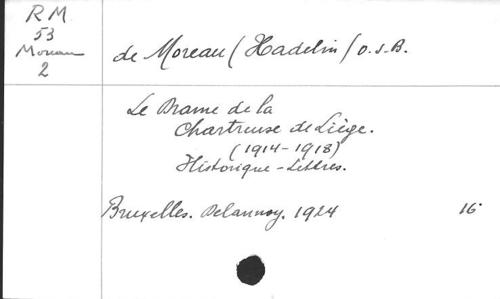 RM
53
Moreau
2
de Moreau (Hadelin) O.S.B.
Le Drame de la
Chartreuse de Liège.
(1914-1918)
Historique-Lettres.
Bruxelles. Delannoy. 1924 16°